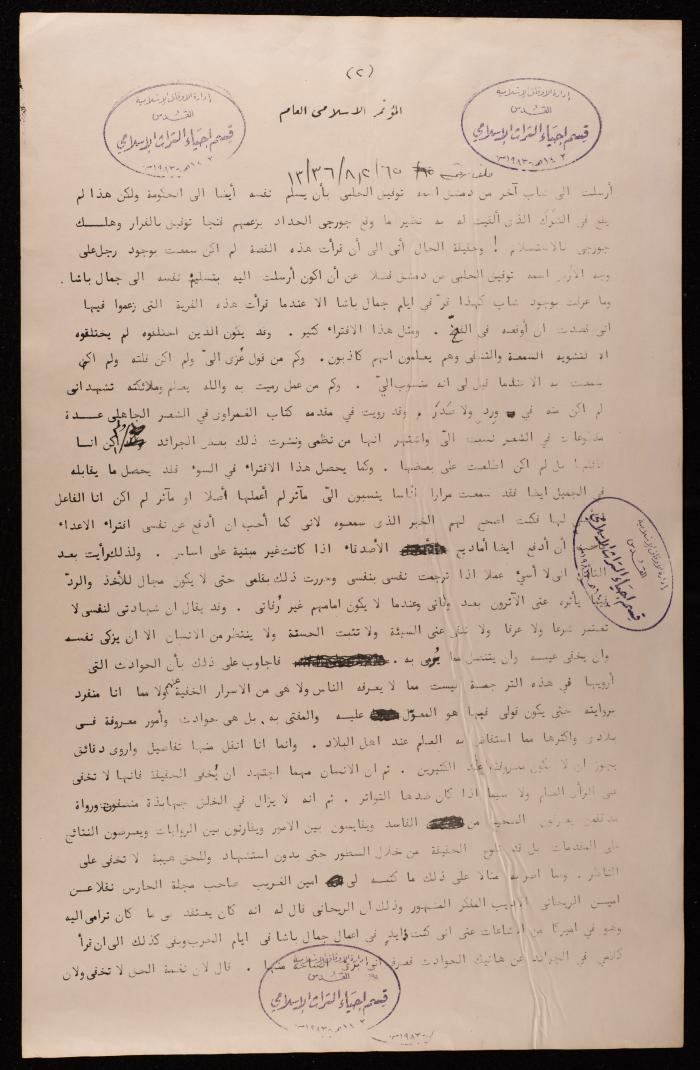 (٢)
ادارة الاوقاف الاسلامية
القدس
قسم إحياء التراث الإسلامي
ادارة الاوقاف الاسلامية
القدس
قسم إحياء التراث الإسلامي
المؤتمر الاسلامى العام
١٣/٣٦/٨,٢/٦٥
أرسلت الى شاب آخر من دمشق اسمه توفيق الحلبى بأن يسلم نفسه أيضا الى الحكومة ولكن هذا لم
يقع فى الشرك الذى ألقيت له به نظير ما وقع جورجى الحداد بزعمهم فنجا توفيق بالفرار وهلـــك
جورجى بالاستسلام ! وحقيقة الحال أنى الى أن قرأت هذه القصة لم اكن سمعت بوجود رجل على
وجه الأرض اسمه توفيق الحلبى من دمشق فضلا عن أن أكون أرسلت اليه بتسليم نفسه الى جمال باشا .
وما عرفت بوجود شاب كهذا فرّ فى ايام جمال باشا الا عندما قرأت هذه الفرية التى زعموا فيها
انى قصدت ان أوقعه فى الفخ . ومثل هذا الافتراء كثير . وقد يكون الذين اختلقوه لم يختلقوه
الا لتشويه السمعة والتشفى وهم يعلمون انهم كاذبون . وكم من قول عُزى الىّ ولم اكن قلته ولم اكن
سمعت به الا عندما قيل لى انه منسوب الىّ . وكم من عمل رميت به والله يعلم وملائكته تشهد انى
لم اكن منه فى ورد ولا صَدَر . وقد رويت فى مقدمه كتاب الغمراوى فى الشعر الجاهلى عـــدة
مقطوعات فى الشعر نسبت الىّ واشتهر انها من نظمى ونشرت ذلك بعض الجرائد ولم اكن انـــا
قائلها بل لم اكن اطلعت على بعضها . وكما يحصل هذا الافتراء فى السوء فقد يحصل ما يقابله
فى الجميل ايضا فقد سمعت مرارا اناسا ينسبون الىّ مآثر لم أعملها أصلا او مآثر لم اكن انا الفاعل
لها فكنت اصحح لهم الخبر الذى سمعوه لانى كما أحب ان أدفع عن نفسى افتراء الاعداء
أن أدفع ايضا أماديح الأصدقاء اذا كانت غير مبنية على اساس . ولذلك رأيت بعد
انى لا أسىء عملا اذا ترجمت نفسى بنفسى وحررت ذلك بقلمى حتى لا يكون مجال للأخذ والردّ
يأثره عنى الآثرون بعد وفاتى وعندما لا يكون امامهم غير رُفاتى . وقد يقال ان شهادتى لنفسى لا
تعتبر شرعا ولا عرفا ولا تنفى عنى السيئة ولا تثبت الحسنة ولا ينتظر من الانسان الا ان يزكى نفسه
وان يخفى عيبه وان يتنصل مما به . فاجاوب على ذلك بأن الحوادث التى
أرويها فى هذه الترجمة ليست مما لا يعرفه الناس ولا هى من الاسرار الخفية عنهم ولا مما انا منفرد
بروايته حتى يكون قولى فيها هو المعوّل عليه والمفتى به , بل هى حوادث وأمور معروفة فــى
بلادى واكثرها مما استفاض به العلم عند اهل البلاد . وانما انا انقل منها تفاصيل واروى دقائق
يجوز ان لا تكون معروفة عند الكثيرين . ثم ان الانسان مهما اجتهد ان يُخفى الحقيقة فانها لا تخفى
على الرأى العام ولا سيما اذا كان ضدها التواتر . ثم انه لا يزال فى الخلق جهابذة منصفون ورواة
مدققون يعرفون الصحيح من الفاسد ويقايسون بين الامور ويقارنون بين الروايات ويعرضون النتائج
على المقدمات بل قد تلوح الحقيقة من خلال السطور حتى بدون استشهاد وللحق هيبة لا تخفى على
الناظر . وما اضربه مثالا على ذلك ما كتبه لى امين الغريب صاحب مجلة الحارس نقلا عـــن
امين الريحانى الأديب المفكر المشهور وذلك ان الريحانى قال له انه كان يعتقد بى ما كان ترامى اليه
وهو فى اميركا من اشاعات عنى انى كنت فى اعمال جمال باشا فى ايام الحرب وبقى كذلك الى ان قرأ
كلامى فى الجرائد عن هاتيك الحوادث فعرف انى برىء الساحة منها . قال لان نغمة الحق لا تخفى ولان
ادارة الاوقاف الاسلامية
القدس
قسم إحياء التراث الإسلامي
ادارة الاوقاف الاسلامية
القدس
قسم إحياء التراث الإسلامي